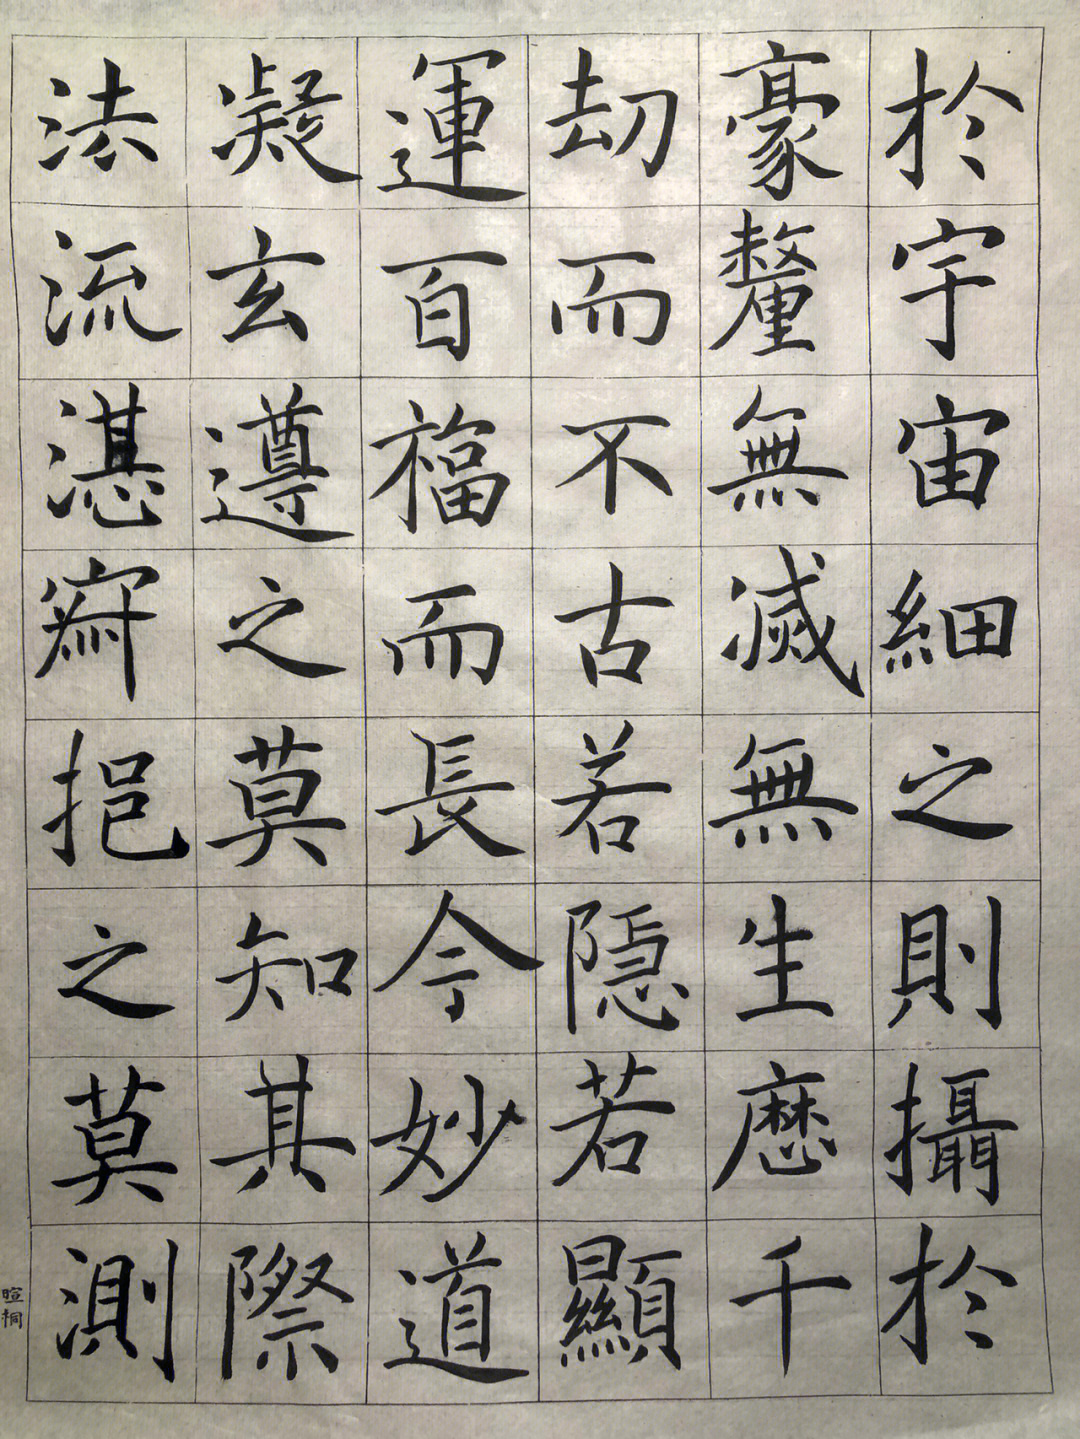 於宇宙細之則攝於
豪釐無滅無生歷千
劫而不古若隱若顯
運百福而長今妙道
凝玄遵之莫知其際
法流湛寂挹之莫測
暄桐